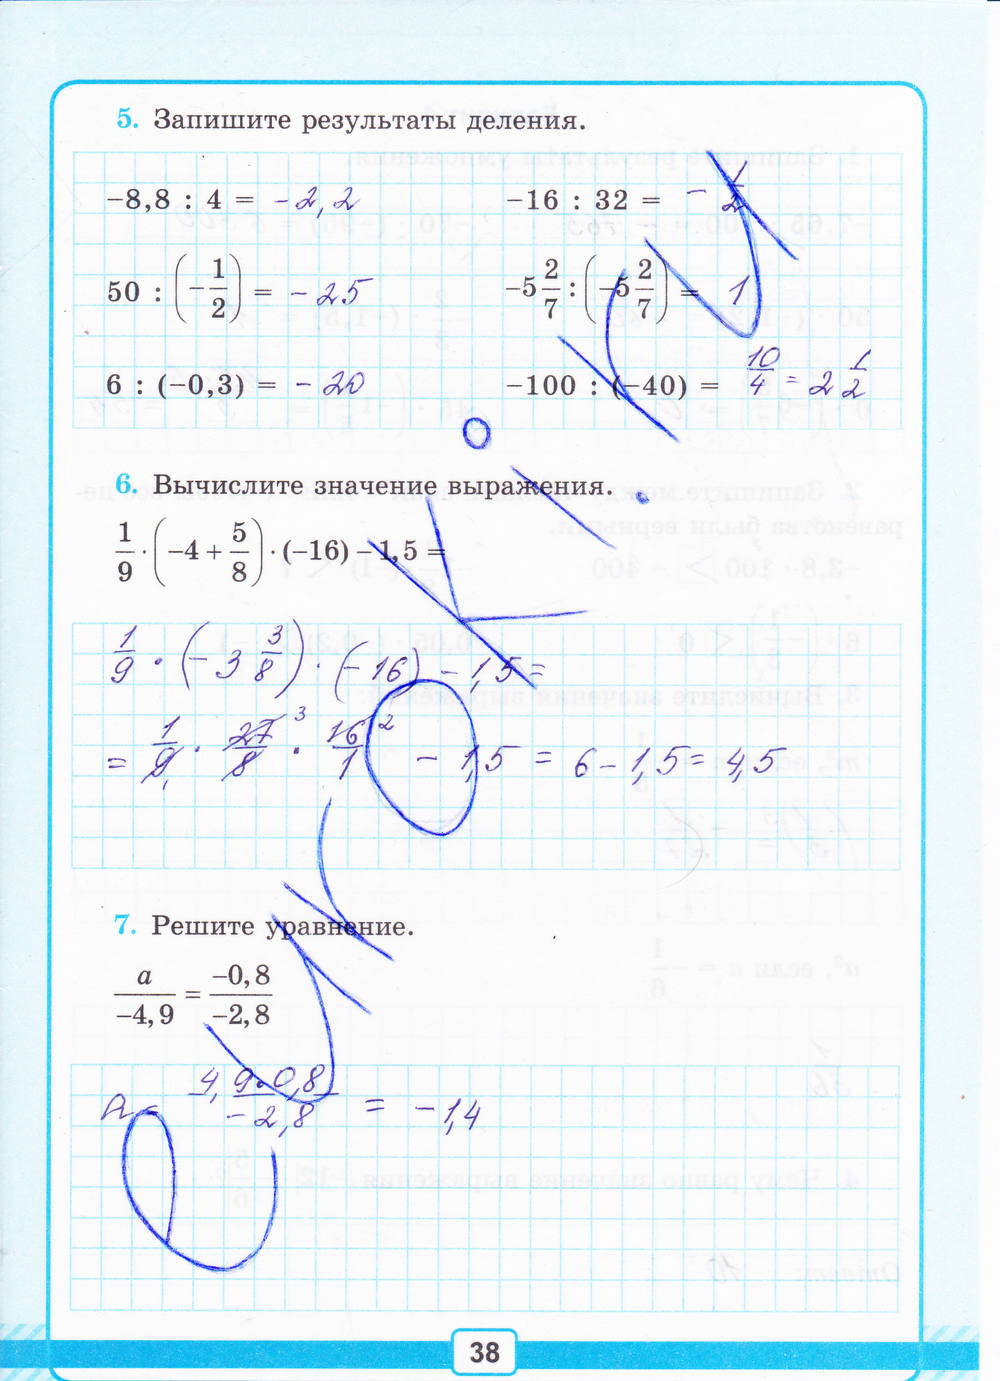 5. Запишите результаты деления.
-8,8 : 4 = -2,2
-16 : 32 = -1/2
50 : (-1/2) = -25
-5 2/7 : (-5 2/7) = 1
6 : (-0,3) = -20
-100 : (-40) = 10/4 = 2 1/2
6. Вычислите значение выражения.
1/9 · (-4 + 5/8) · (-16) - 1,5 =
1/9 · (-3 3/8) · (-16) - 1,5 =
= 1/9 · 27/8 · 16/1 - 1,5 = 6 - 1,5 = 4,5
7. Решите уравнение.
a/-4,9 = -0,8/-2,8
a = 4,9·0,8/-2,8 = -1,4
38